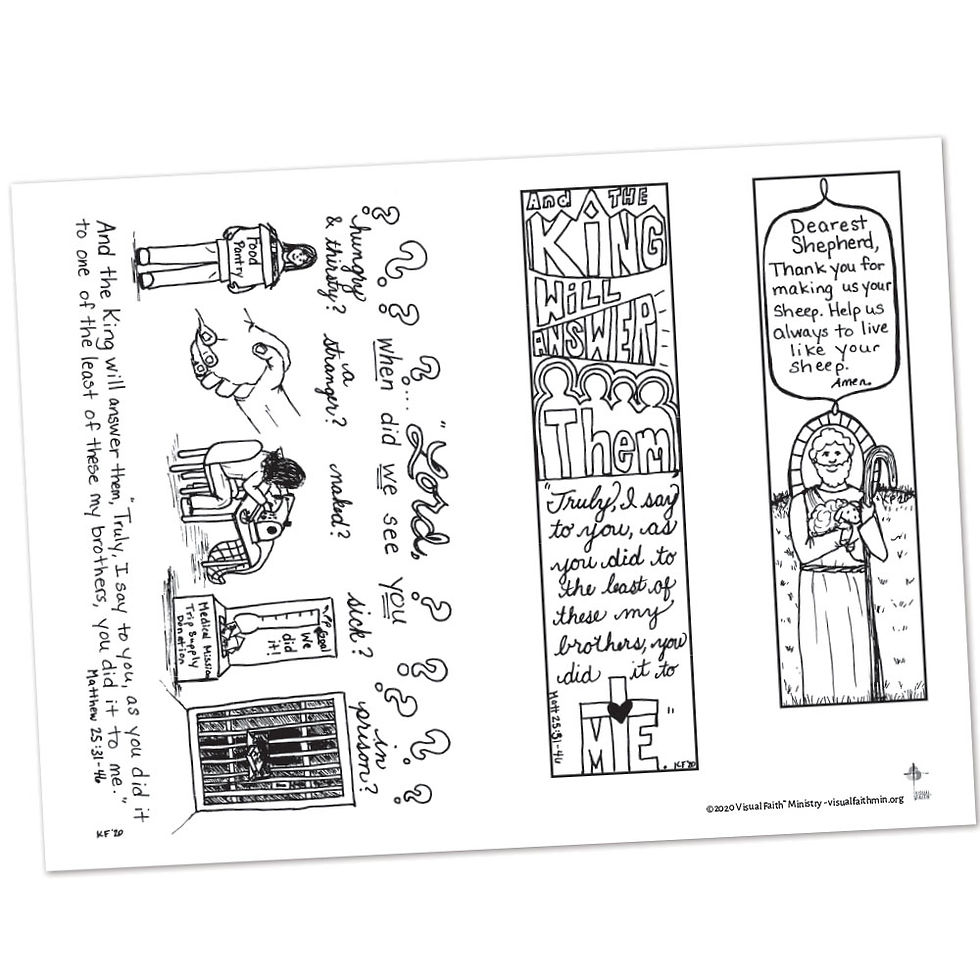 "Lord,
when did we see you
hungry & thirsty?
a stranger?
naked?
sick?
in prison?
Food Pantry
We did it!
Goal
Medical Mission
Trip Supply
Donation
And the King will answer them, "Truly, I say to you, as you did it
to one of the least of these my brothers, you did it to me."
Matthew 25:31-46
KF'20
And THE
KING
WILL
ANSWER
Them
"Truly, I say
to you, as
you did to
the least of
these my
brothers, you
did it to
ME."
Matt 25:31-46
KF'20
Dearest
Shepherd,
Thank you for
making us your
sheep. Help us
always to live
like your
sheep.
Amen
KF'20
©2020 Visual Faith™ Ministry - visualfaithmin.org